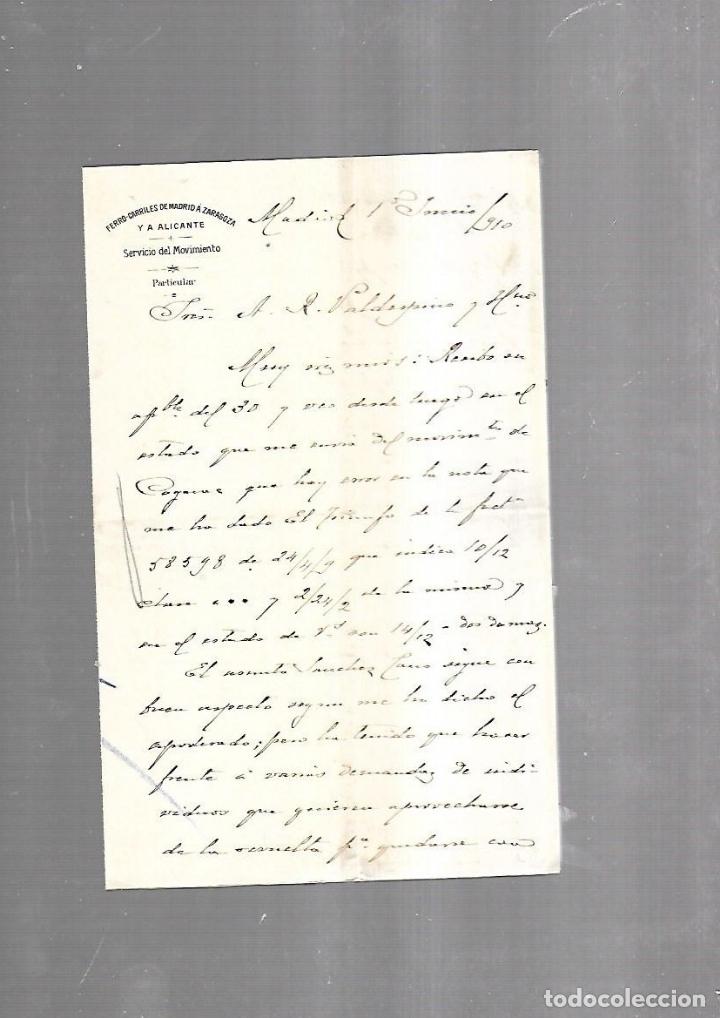 FERRO-CARRILES DE MADRID Á ZARAGOZA
Y A ALICANTE
Servicio del Movimiento
Particular
Madrid 1º Junio /910
Sres. A. R. Valdespino y Hno
Muy sres mios: Recibo su
apble del 30 y veo desde luego en el
estado que me envia del movimto de
Cognac que hay error en la nota que
me ha dado El Triunfo de la fact
58598 de 24/4/9 que indica 10/12
clase ... y 2/24/2 de la misma y
en el estado de Vd son 14/12 = dos de mas.
El asunto Sanchez Cano sigue con
buen aspecto segun me ha dicho el
apoderado; pero ha tenido que hacer
frente á varias demandas de indi-
viduos que quieren aprovecharse
de la revuelta pa. quedarse con
todocoleccion.net